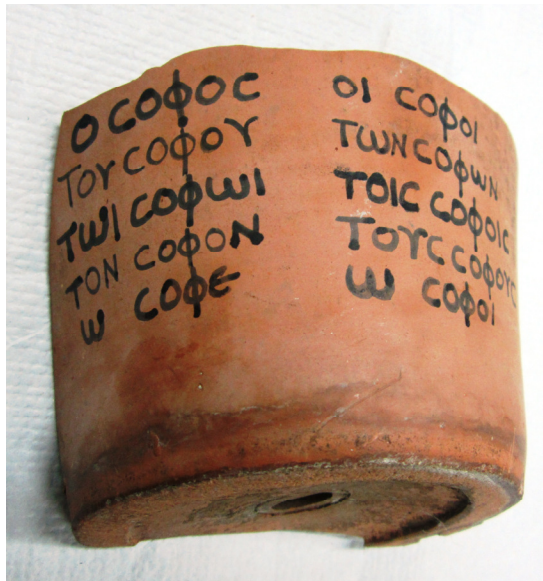 Ο ϹΟΦΟϹ
ΤΟΥ ϹΟΦΟΥ
ΤωΙ ϹΟΦωΙ
ΤΟΝ ϹΟΦΟΝ
ω ϹΟΦΕ
ΟΙ ϹΟΦΟΙ
ΤωΝ ϹΟΦωΝ
ΤΟΙϹ ϹΟΦΟΙϹ
ΤΟΥϹ ϹΟΦΟΥϹ
ω ϹΟΦΟΙ